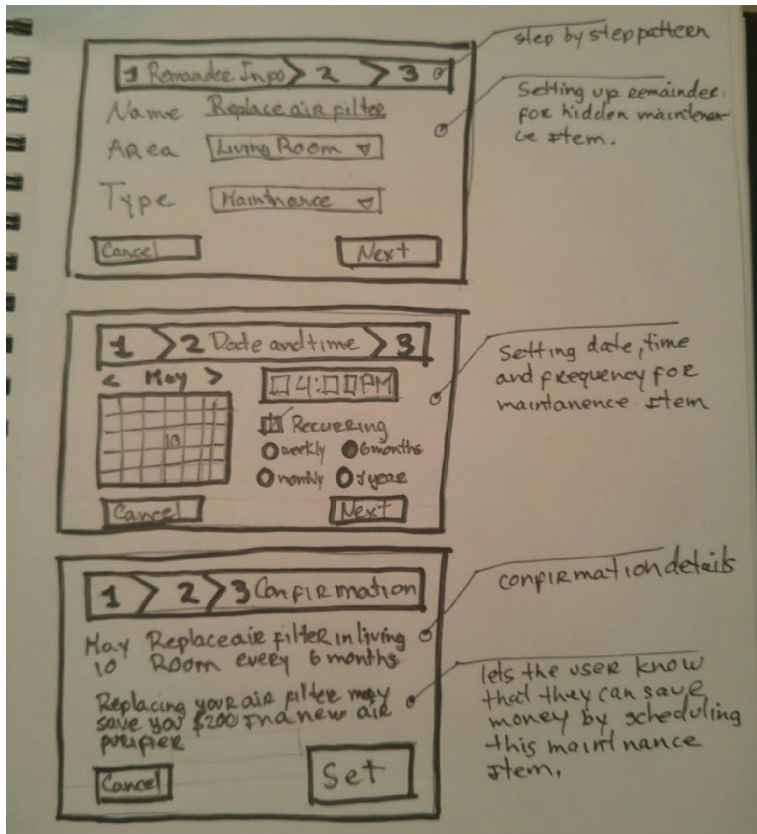 1 Remandee Info > 2 > 3
Name Replace air filter
Area Living Room
Type Maintnance
Cancel Next
step by step pattern
Setting up remainder
for hidden maintenan
ce item.
1 > 2 Date and time > 3
< May >
4:00 PM
10
Recurring
weekly 6 months
monthly 1 year
Cancel Next
Setting date, time
and frequency for
maintanence item
1 > 2 > 3 Confirmation
May Replace air filter in living
10 Room every 6 months
Replacing your air filter may
save you $200 in a new air
purifier
Cancel Set
confirmation details
lets the user know
that they can save
money by scheduling
this maintnance
item.